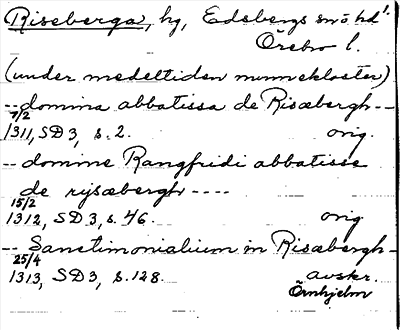 Riseberga, hg, Edsbergs snö hd1.
Örebro l.
(under medeltiden nunnekloster)
-- domina abbatissa de Risæbergh --
7/2
1311, SD 3, s. 2. orig.
-- domine Rangfridi abbatisse
de rysæbergh ----
15/2
1312, SD 3, s. 46. orig
-- Sanctimonialium in Risæbergh -
25/4
1313, SD 3, s. 128. avskr.
Örnhjelm